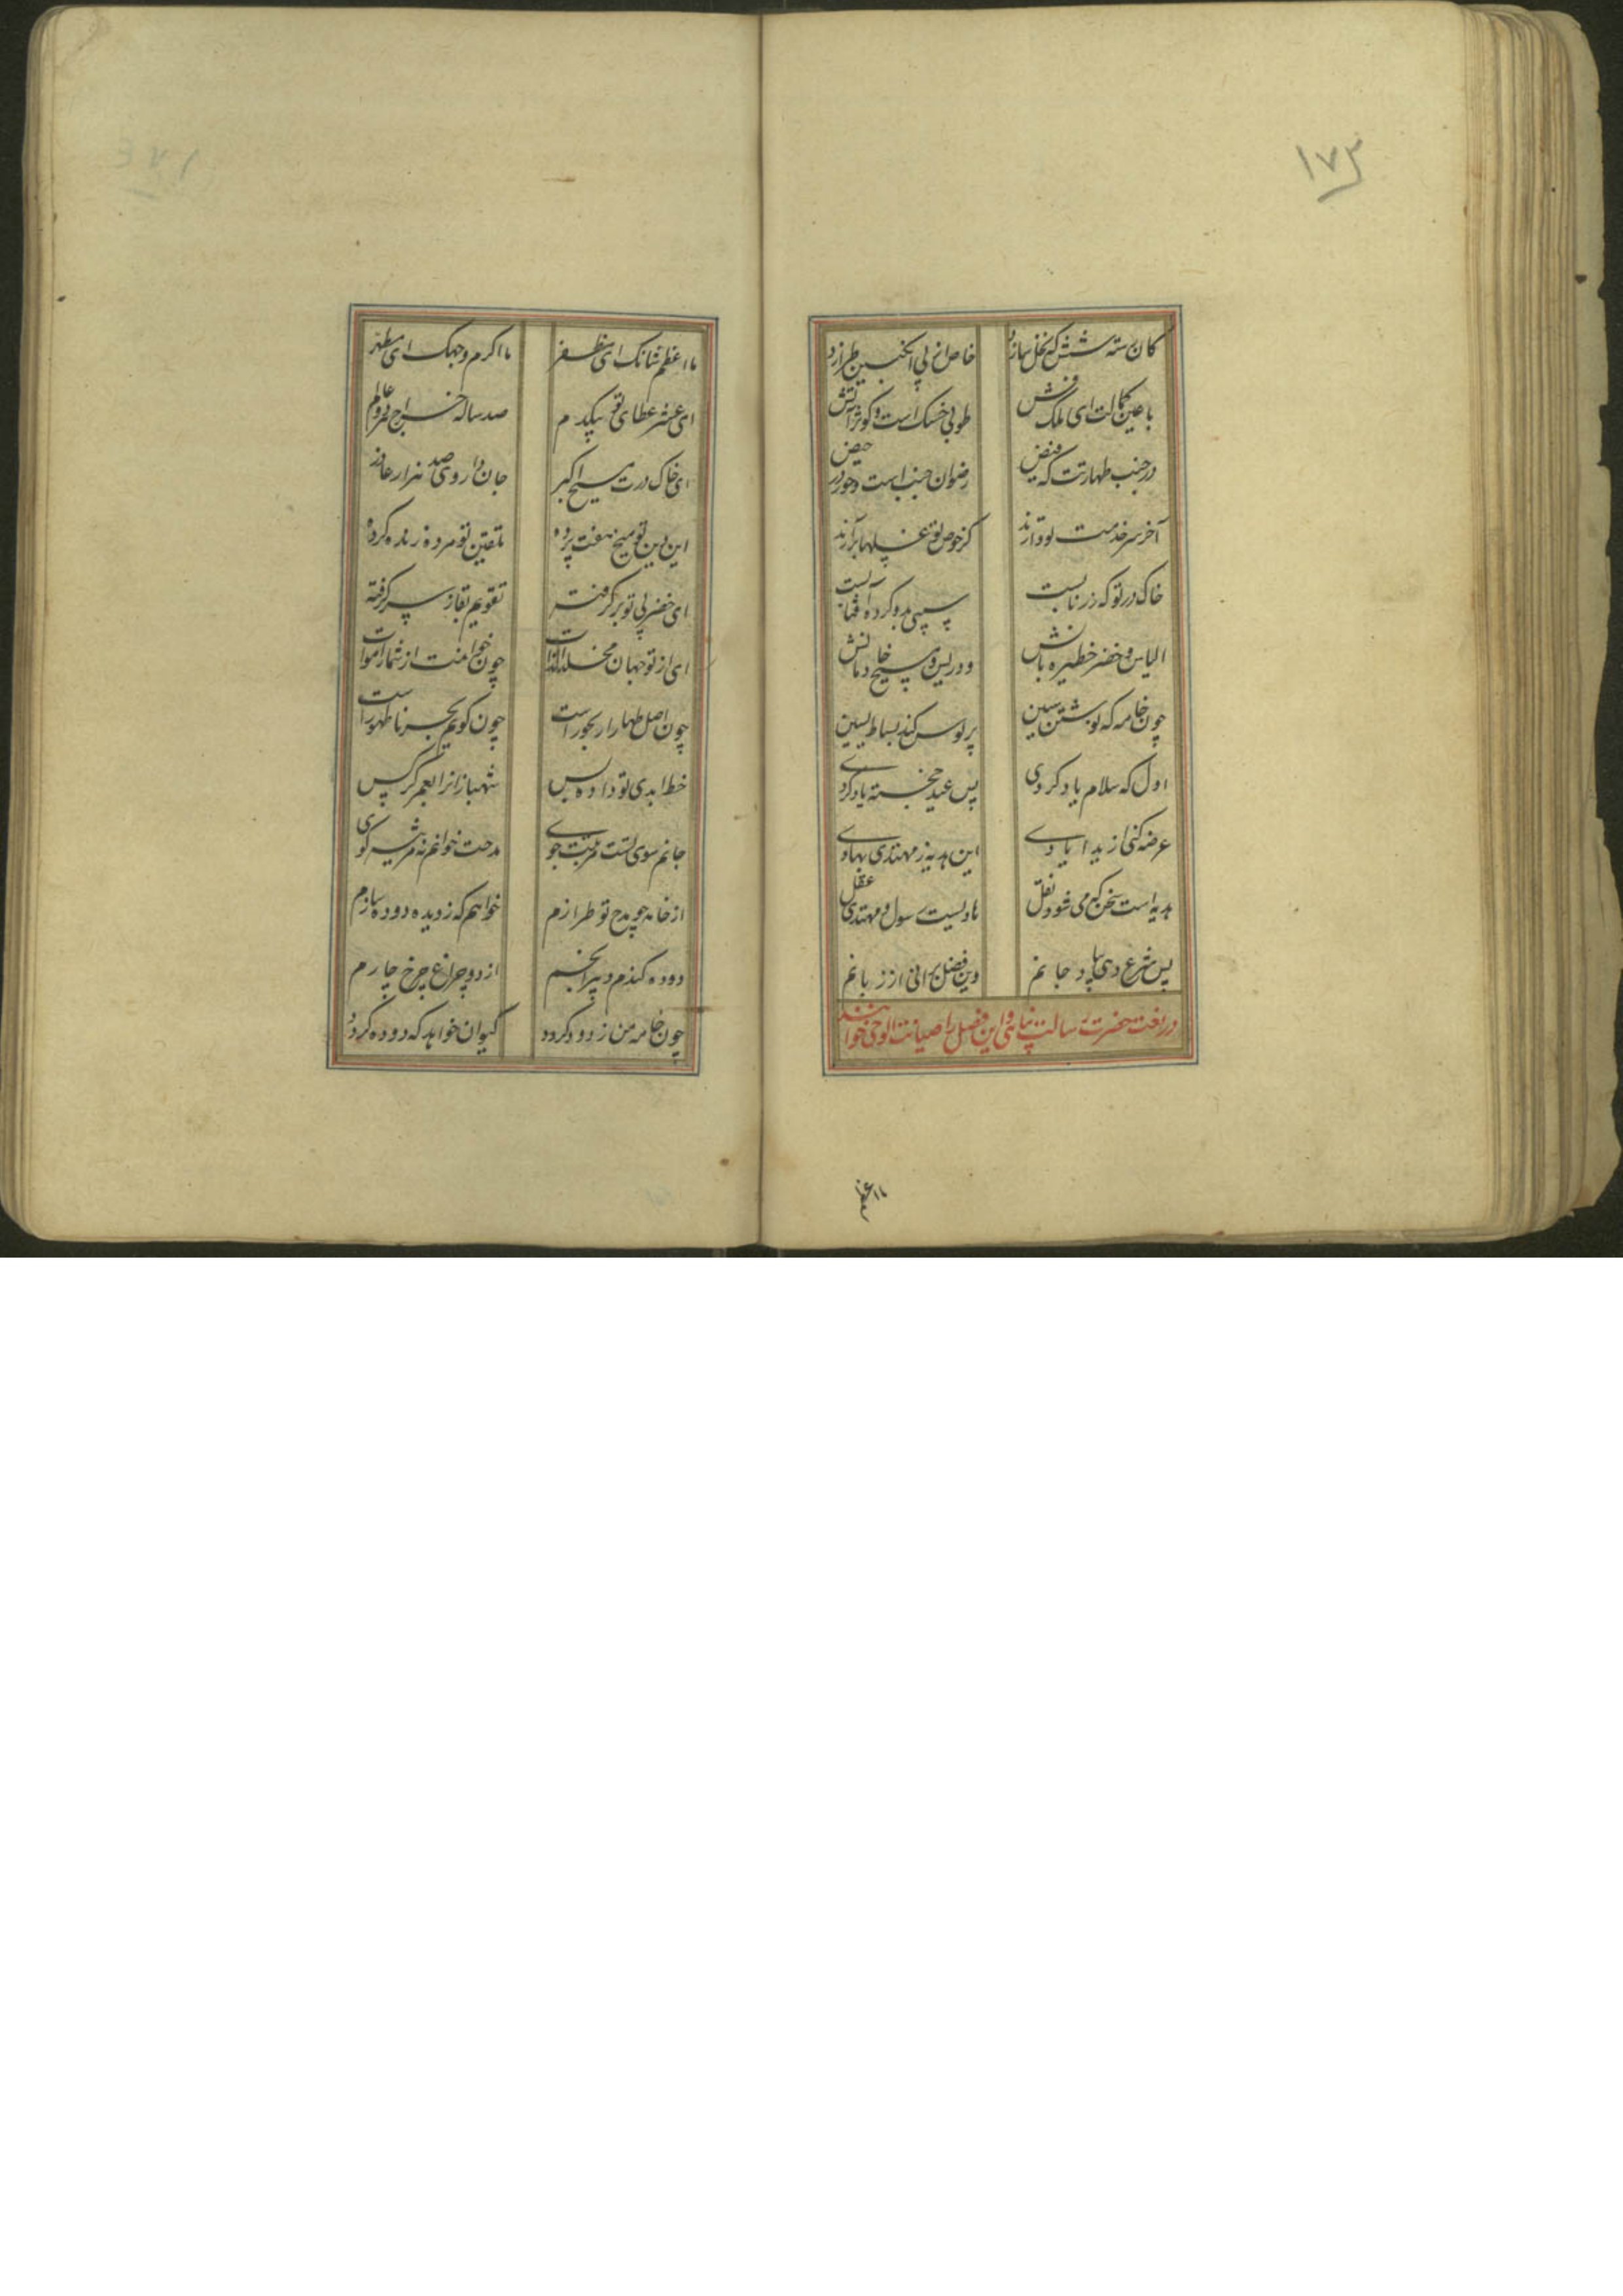 ۱۷۳
کان رسته شش که نخل سازد خاص از پی انگبین طرازد
با عین کمالت ای ملک وش طوبی خسک است و کوثر آتش
در جنب طهارتت که فیض رضوان جنب است و حور در حیض
آخر سر خدمت تو دارند کز حوض تو غسلها برآرند
خاک در تو که زر ناب است سپی مه و کرده آفتاب است
الیاس و خضر خطیره بانش ودریس و مسیح خادمانش
چون خامه که نوشتن سین پر بوس کند بساط یسین
اول که سلام یاد کردی پس عید خجسته یاد کردی
عرضه کنی از ید ایادی این هدیه ز مهتدی بهادی
هدیه است سخن که می شود نقل هادیست رسول و مهتدی عقل
پس شرع دمی بپاید جانم وین فضل برانی از زبانم
در نعت حضرت رسالت پناهی و این فصل را صیانت الوحی خوانند
ما اعظم
ما اعظم شانک ای مظفر ما اکرم وجهک ای مطهر
ای عشر عطای تو بیکدم صد ساله خراج هر دو عالم
ای خاک درت مسیح اکبر جان داروی صد هزار عاذر
این دین تو مسیح هفت پرده تلقین تو مرده زنده کرده
ای خضر پی تو بر گرفته تقویم بقا ز سر گرفته
ای از تو جهان مخلد الذات چون خوامنت از شمار اموات
چون اصل طهارا بحور است چون گویم بحر نا طهور است
خط ابدی تو داده پس شهبازانرا بعمر کرکس
جانم سوی تست مرتبت جوی مدحت خوانم نه مرثیه گوی
از خامه چو مدح تو طرازم خواهم که ز دیده دوده سازم
دوده کندم دبیر انجم از دود چراغ چرخ چارم
چون خامه من ز دود گردد کیوان خواهد که دوده گردد